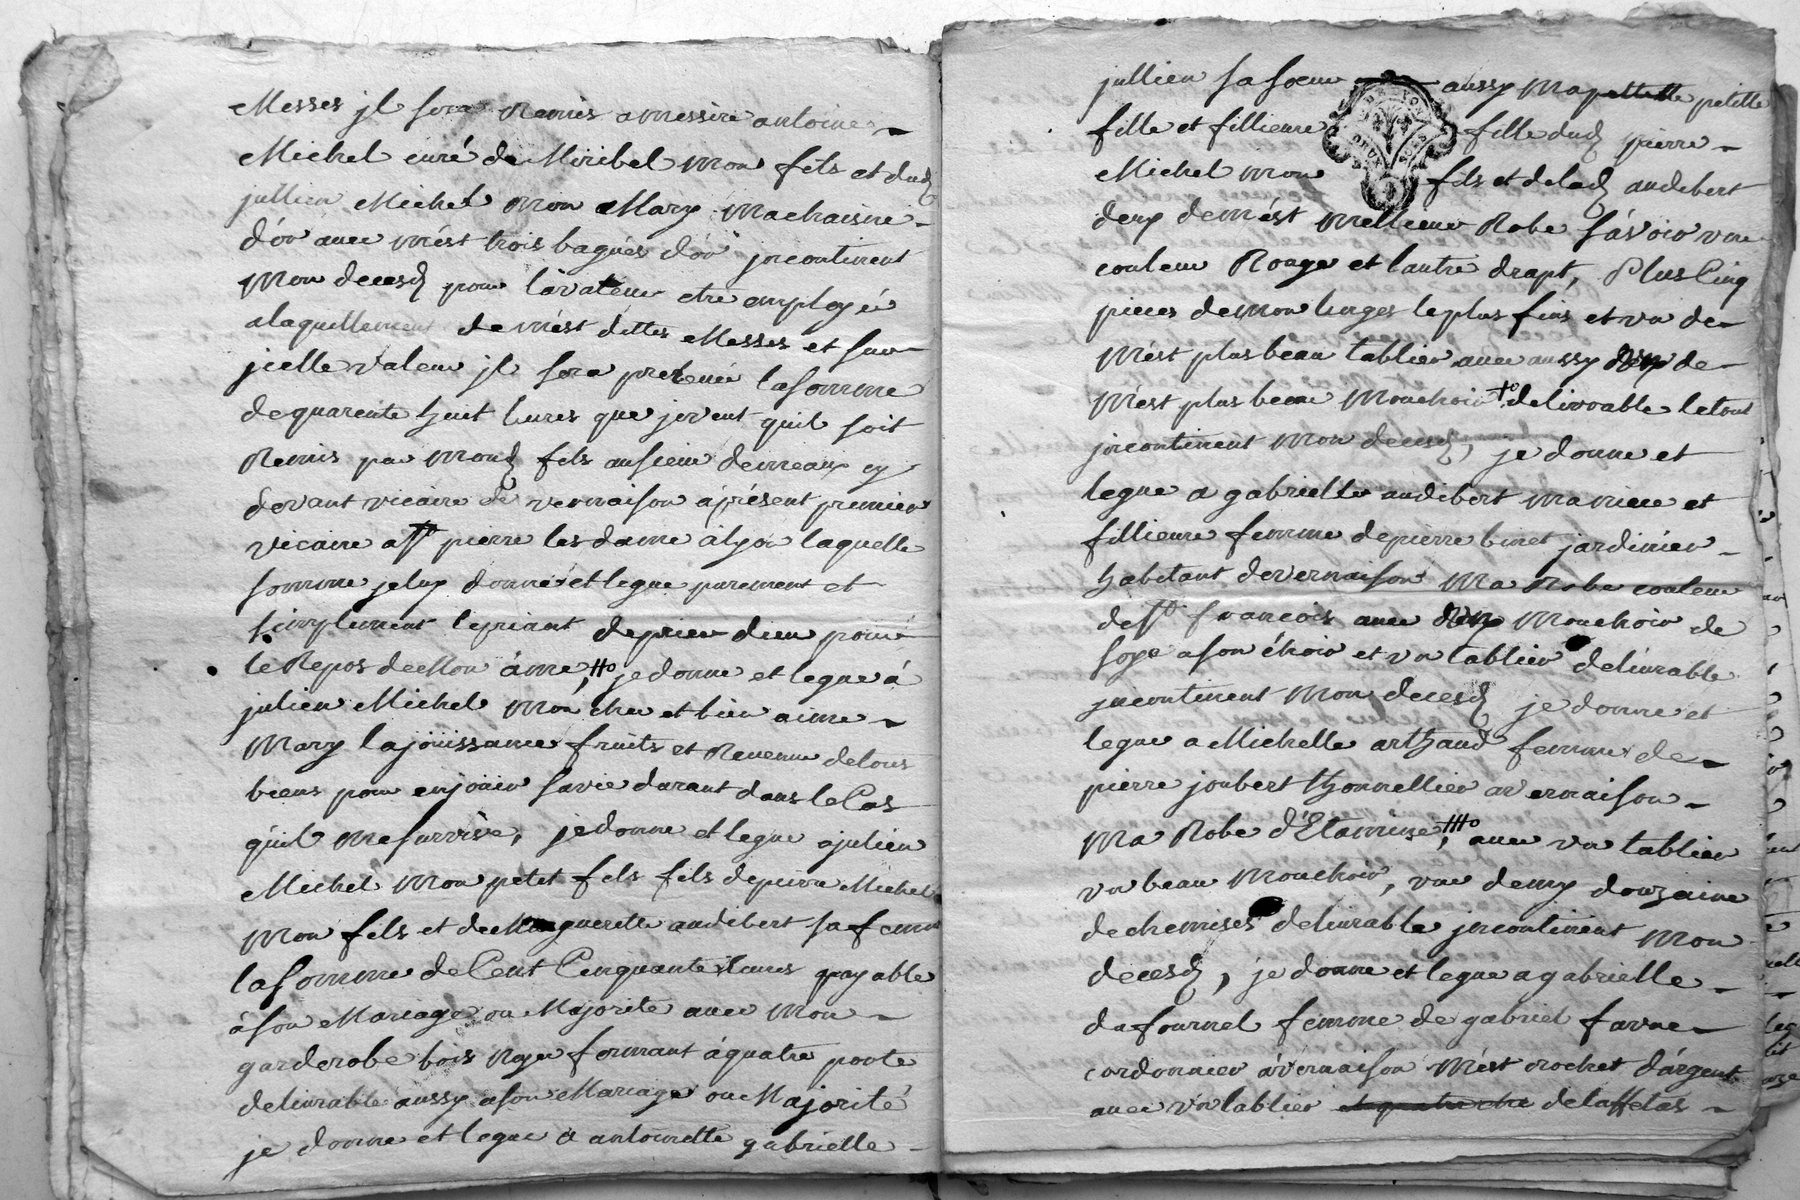 Messes jl sera Remis a messire antoine
Michel curé de Miribel mon fils et dud
jullien Michel mon Mary ma chaisne
d'or avec mést trois bagués d'or jncontinent
mon deces pour la valeur etre employée
alaquittement de mést dittes Messes et sur
jcelle valeur jl sera prelevée la somme
de quarente huit livres que je veut quil soit
Remis par mond fils au sieur demeaux cy
devant vicaire de vernaison àprésent premier
vicaire a st pierre les dame àlyon laquelle
somme je luy donne et legue purement et
simplement le priant de prier dieu pour
le Repos de Mon âme, je donne et legue à
julien Michel mon cher et bien aimé
Mary la joüissance fruits et Revenu de tous
biens pour en joüir sa vie durant dans le Cas
quil me survive, je donne et legue a julien
Michel mon petit fils fils de pierre Michel
mon fils et de Marguerette audibert sa femme
la somme de Cent Cinquante livres payable
à son Mariage ou Majorité avec mon
garderobe bois noyer formant à quatre porte
delivrable aussy a son Mariage ou Majorité
je donne et legue a antoinette gabrielle
jullien sa soeur aussy ma petitte
fille et fillieure fille dud pierre
Michel mon fils et de lad audibert
deux de mést mellieur Robe sávoir une
couleur Rouge et lautre drapt, Plus Cinq
pieces de mon linges le plus fins et un de
mést plus beau tablier avec aussy de
mést plus beau mouchoir delivrable le tout
jncontinent mon deces, je donne et
legue a gabrielle audibert ma niece et
fillieure femme de pierre binet jardinier
habitant de vernaison ma Robe couleur
de st françois avec mouchoir de
soye a son choix et un tablier delivrable
jncontinent mon deces je donne et
legue a Michelle arthaud femme de
pierre joubert thonnellier a vernaison
ma Robe d'Etamine, avec un tablier
un beau mouchoir, une demy douzaine
de chemises delivrable jncontinent mon
deces, je donne et legue a gabrielle
dufournel femme de gabriel favre
cordonnier à vernaison mést crochet d'argent
avec un tablier de taffetas